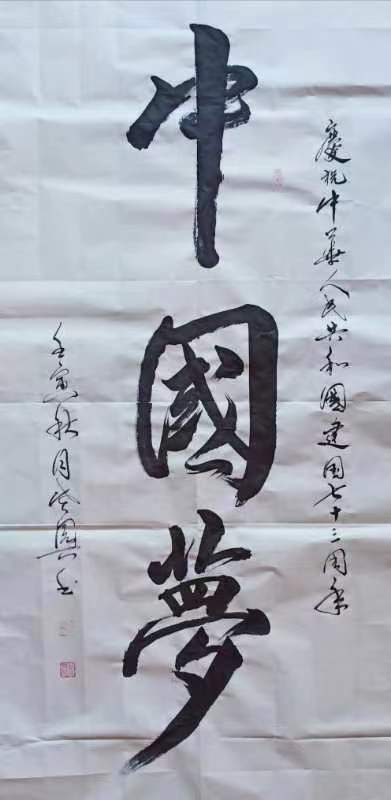 慶祝中華人民共和國建国七十三周年
中國夢
壬寅秋月興书